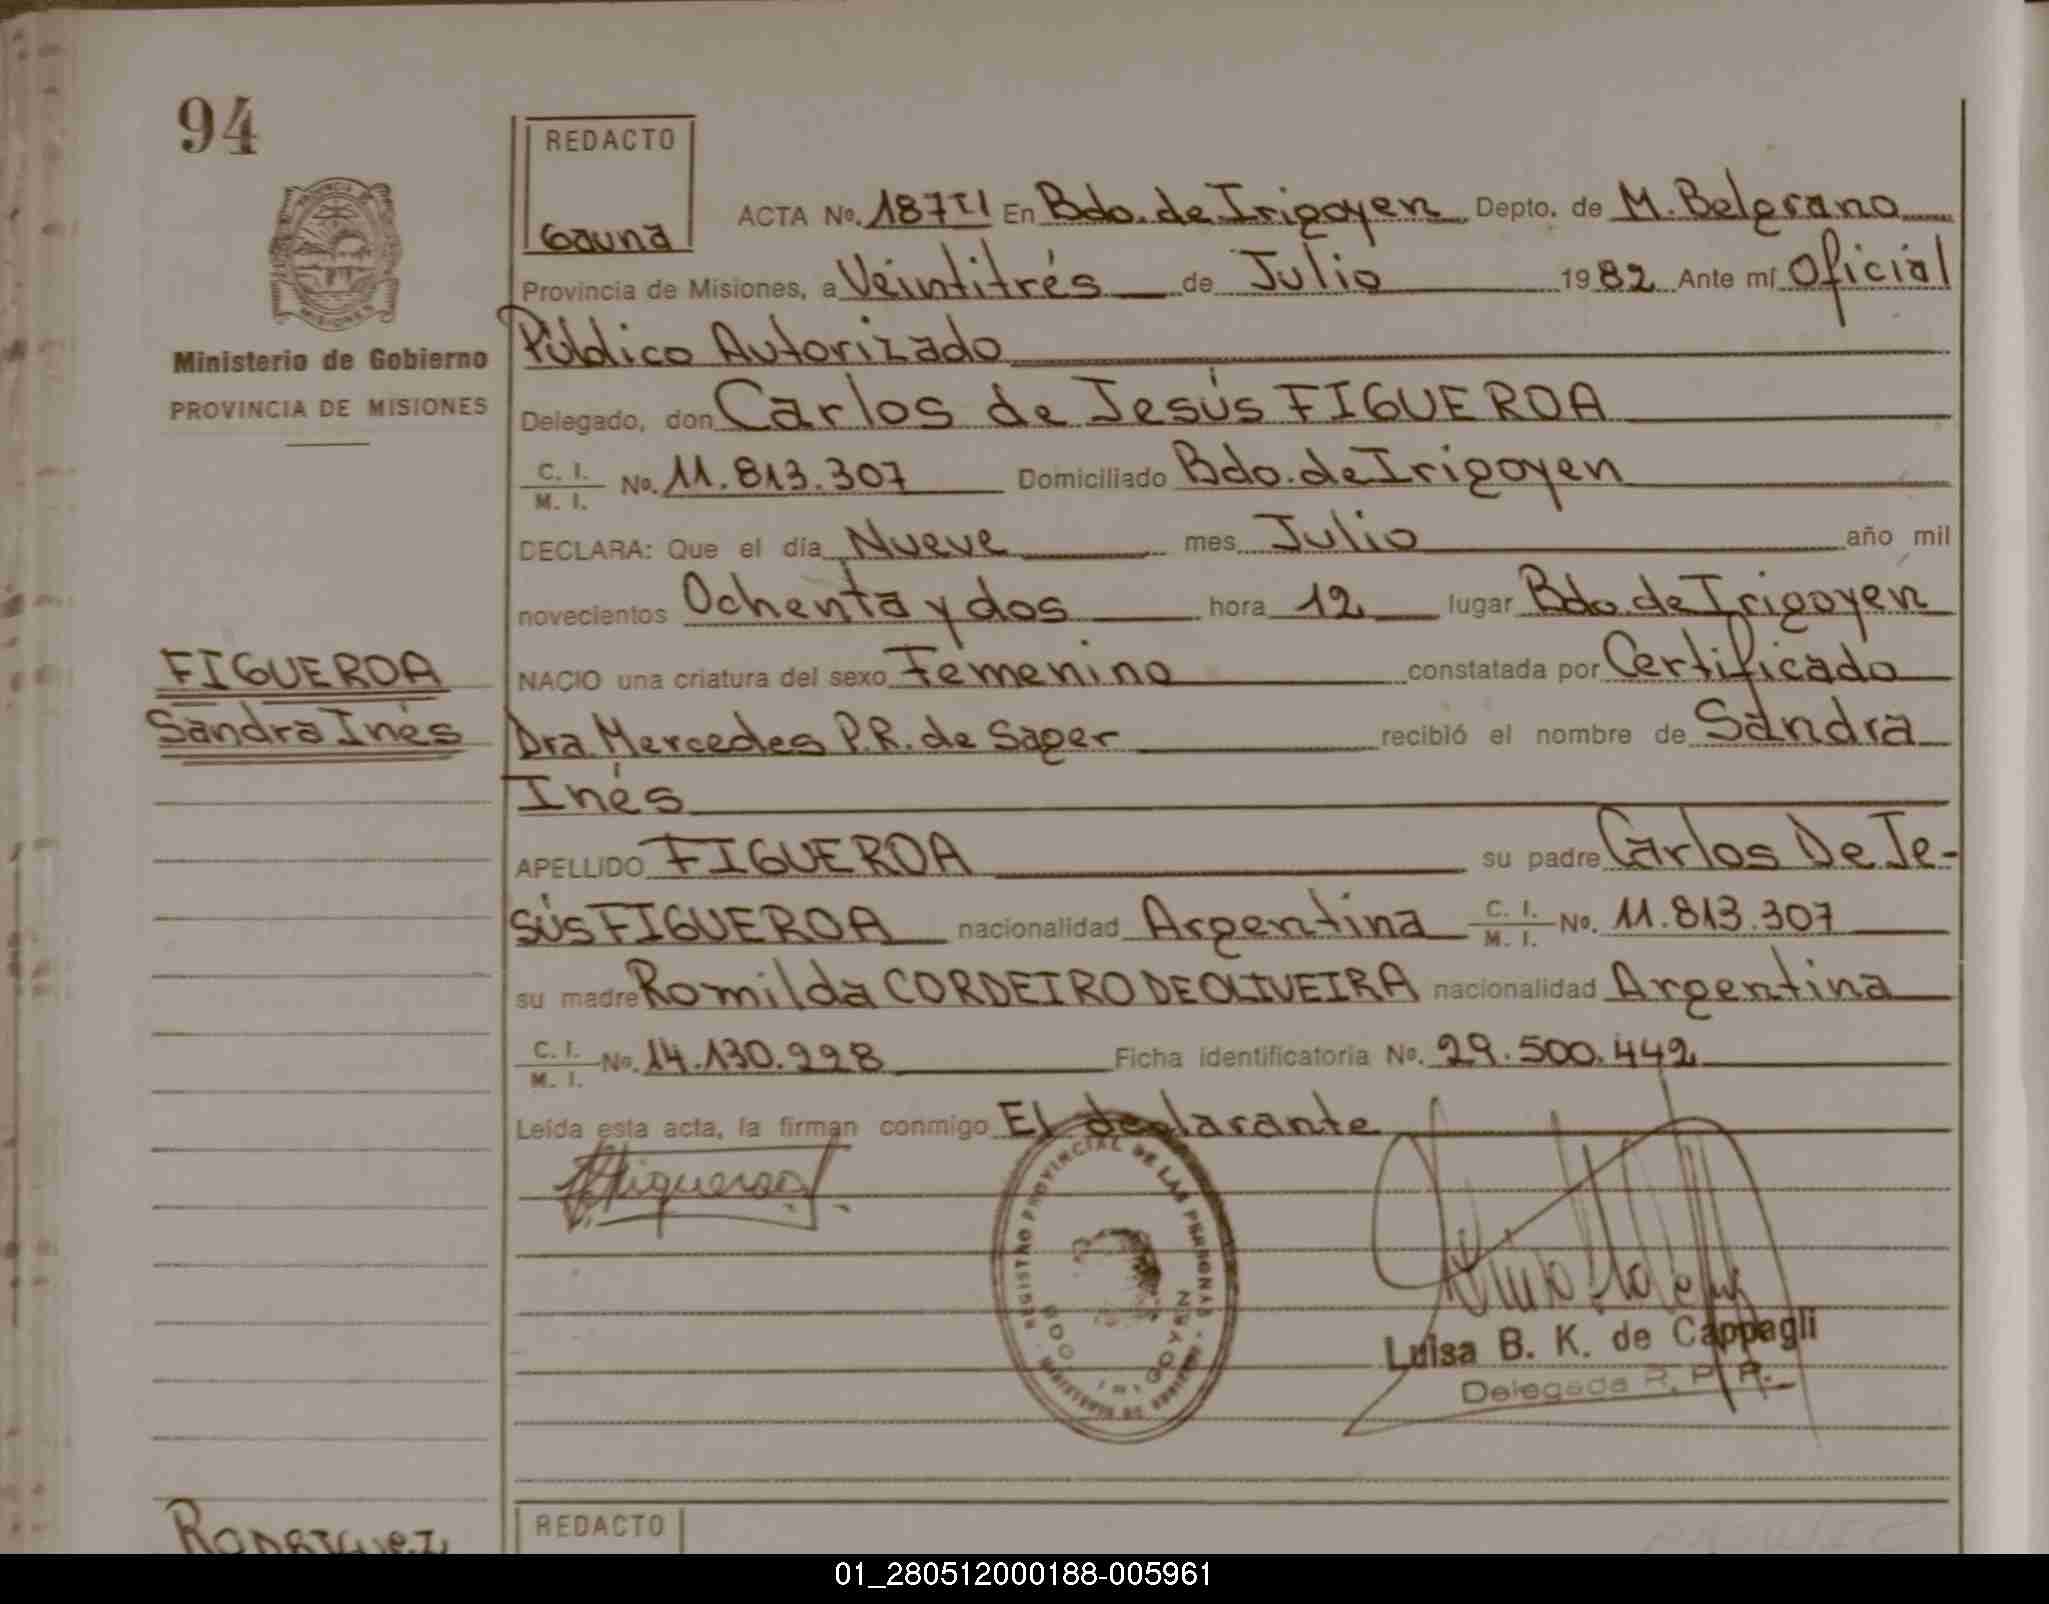 94
REDACTO
Gauna
ACTA No. 187 TI En Bdo. de Irigoyen Depto. de M. Belgrano
Provincia de Misiones, a Veintitrés de Julio 1982 Ante mí Oficial
Público Autorizado
Ministerio de Gobierno
PROVINCIA DE MISIONES
Delegado, don Carlos de Jesús FIGUEROA
C. I.
M. I. No. 11.813.307 Domiciliado Bdo. de Irigoyen
DECLARA: Que el día Nueve mes Julio año mil
novecientos Ochenta y dos hora 12 lugar Bdo. de Irigoyen
FIGUEROA
Sandra Inés
NACIO una criatura del sexo Femenino constatada por Certificado
Dra. Mercedes P.R. de Sager recibió el nombre de Sandra
Inés
APELLIDO FIGUEROA su padre Carlos De Je-
sús FIGUEROA nacionalidad Argentina C. I. M. I. No. 11.813.307
su madre Romilda CORDEIRO DE OLIVEIRA nacionalidad Argentina
C. I. M. I. No. 14.130.998 Ficha identificatoria No. 29.500.442
Leída esta acta, la firman conmigo El declarante
Figueroa
REGISTRO PROVINCIAL DE LAS PERSONAS
BDO. IRIGOYEN
Luisa B. K. de Cappagli
Delegada R. P. P.
RODRIGUEZ
REDACTO
01_280512000188-005961